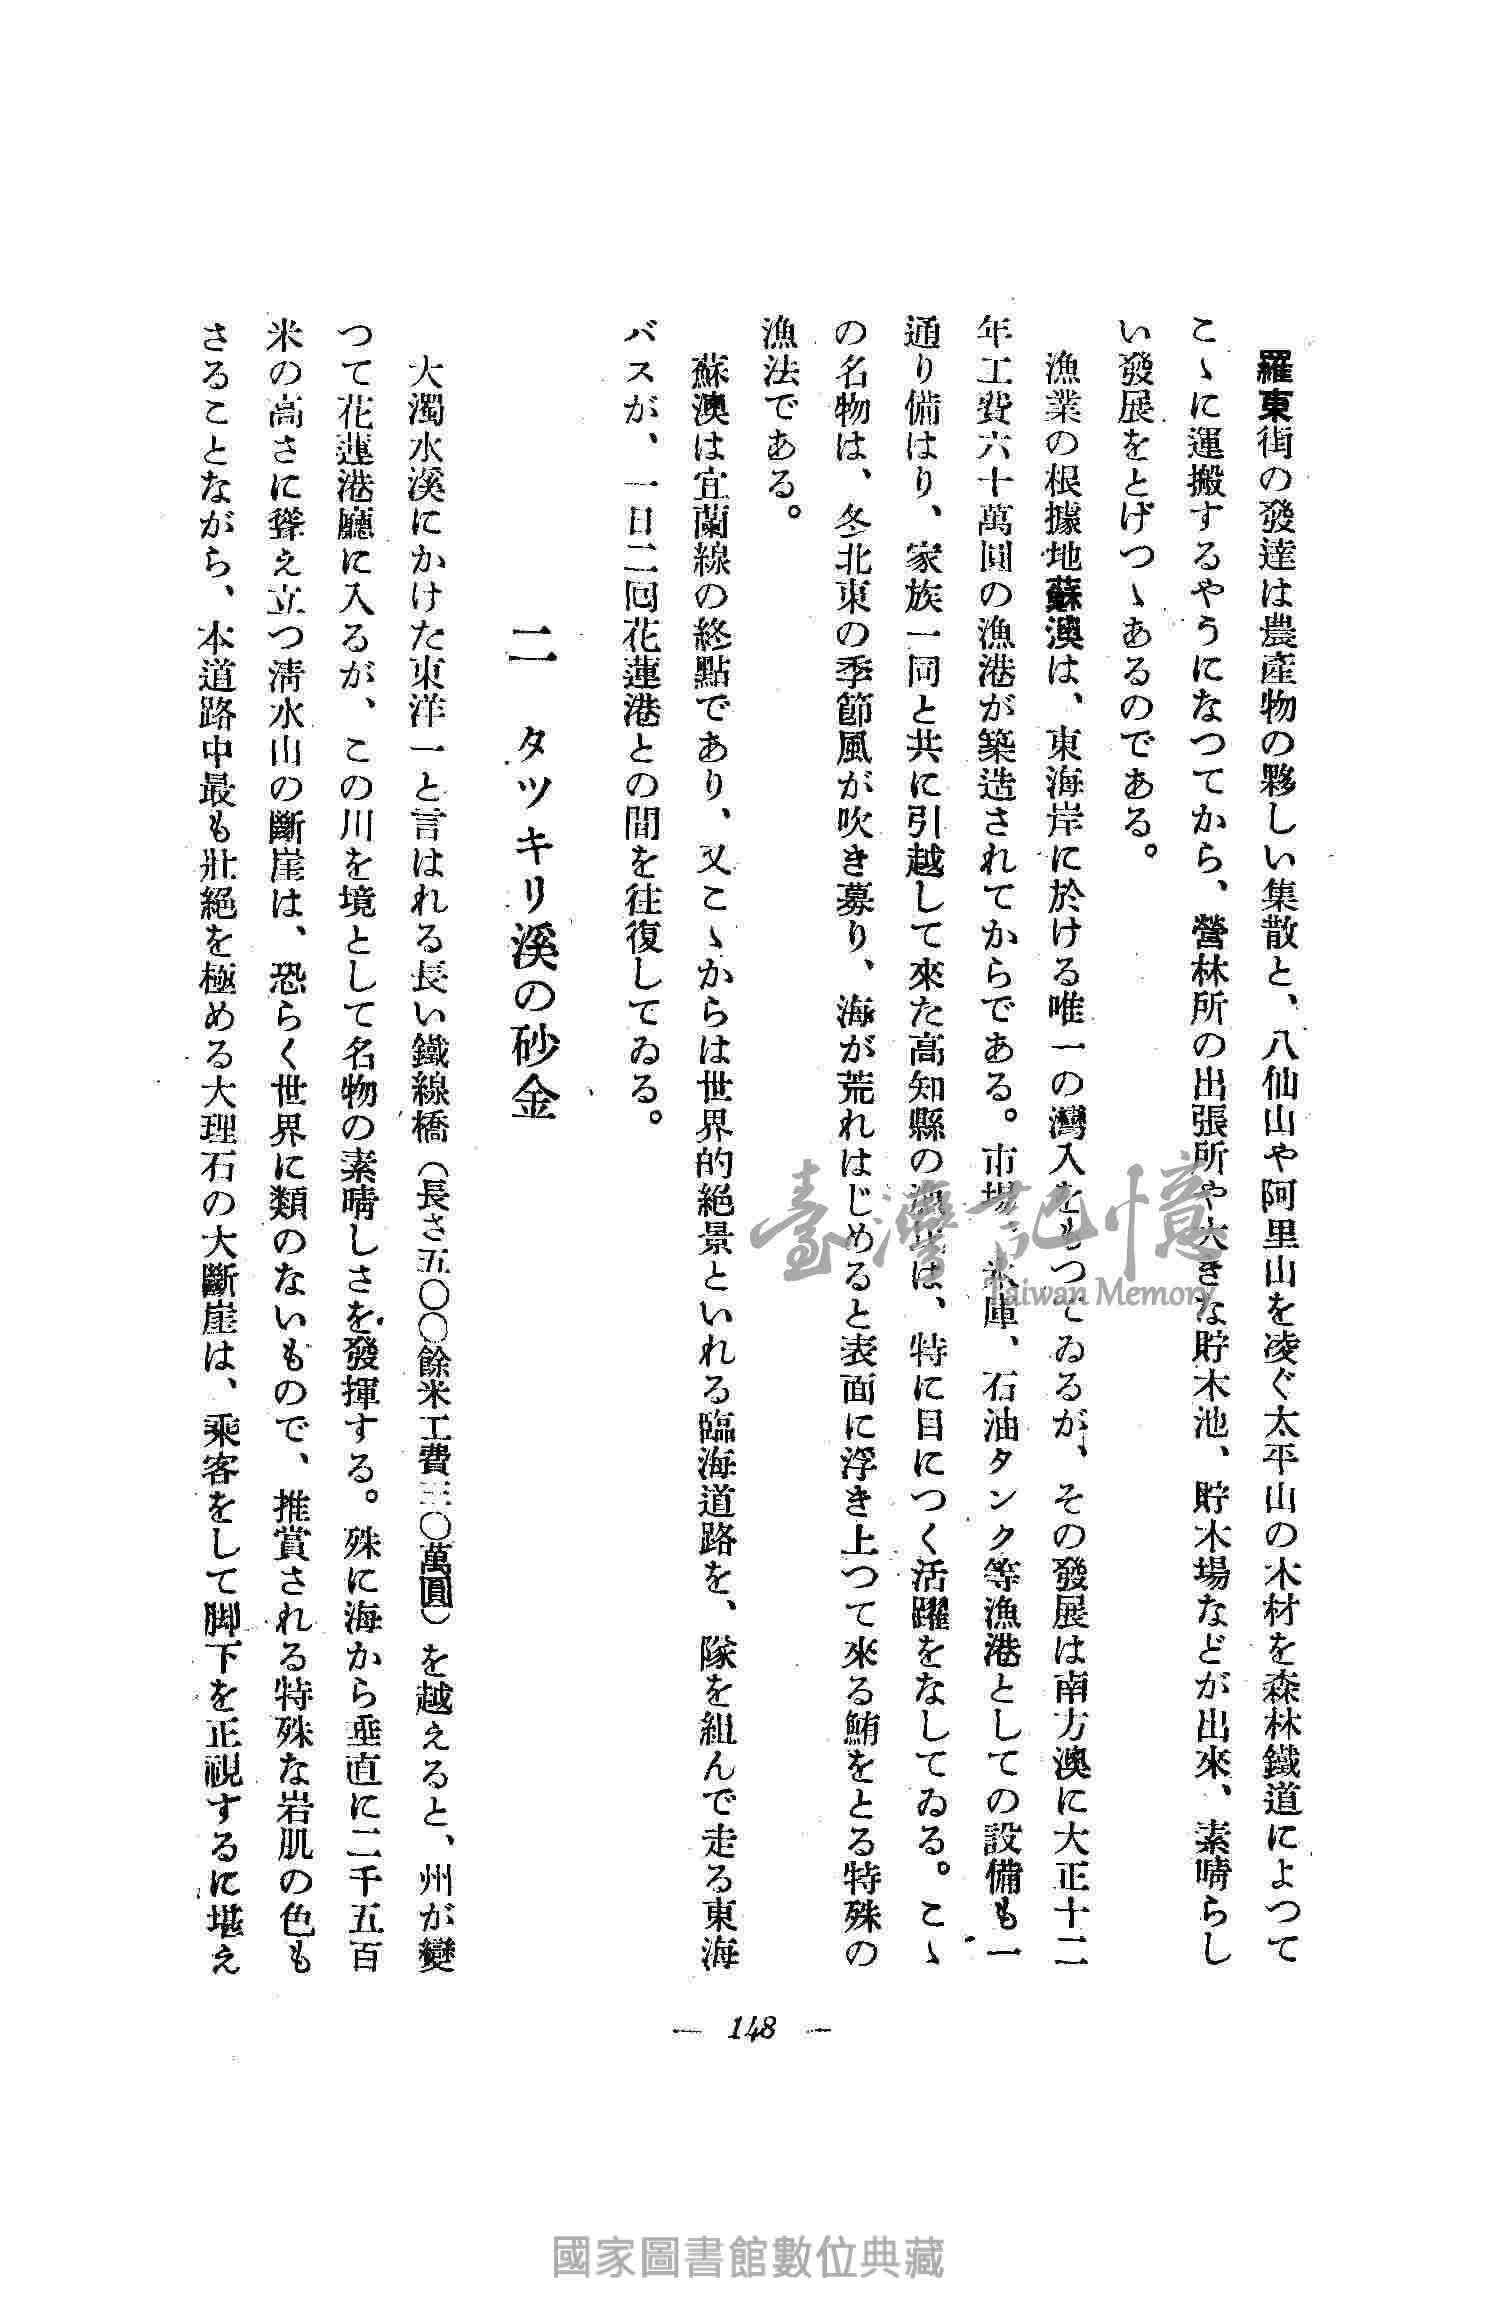 羅東街の發達は農產物の夥しい集散と、八仙山や阿里山を凌ぐ太平山の木材を森林鐵道によつて
こゝに運搬するやうになつてから、營林所の出張所や大きな貯木池、貯木場などが出來、素晴らし
い發展をとげつゝあるのである。
漁業の根據地蘇澳は、東海岸に於ける唯一の灣入をもつてゐるが、その發展は南方澳に大正十二
年工費六十萬圓の漁港が築造されてからである。市場、氷庫、石油タンク等漁港としての設備も一
通り備はり、家族一同と共に引越して來た高知縣の漁民は、特に目につく活躍をなしてゐる。こゝ
の名物は、冬北東の季節風が吹き募り、海が荒れはじめると表面に浮き上つて來る鮪をとる特殊の
漁法である。
蘇澳は宜蘭線の終點であり、又こゝからは世界的絕景といれる臨海道路を、隊を組んで走る東海
バスが、一日二回花蓮港との間を往復してゐる。
二 タツキリ溪の砂金
大濁水溪にかけた東洋一と言はれる長い鐵線橋（長さ五〇〇餘米工費三〇萬圓）を越えると、州が變
つて花蓮港廳に入るが、この川を境として名物の素晴しさを發揮する。殊に海から垂直に二千五百
米の高さに聳え立つ淸水山の斷崖は、恐らく世界に類のないもので、推賞される特殊な岩肌の色も
さることながら、本道路中最も壯絕を極める大理石の大斷崖は、乘客をして脚下を正視するに堪え
— 148 —
臺灣記憶
Taiwan Memory
國家圖書館數位典藏